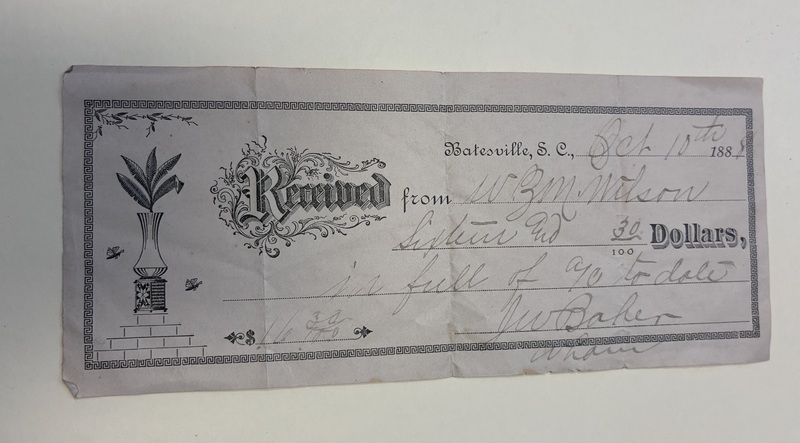 Batesville, S. C., Oct 10th 188
Received from W Z M Wilson
Sixteen and 30/100 Dollars,
in full of a/c to date
$16 30/100
JW Baker